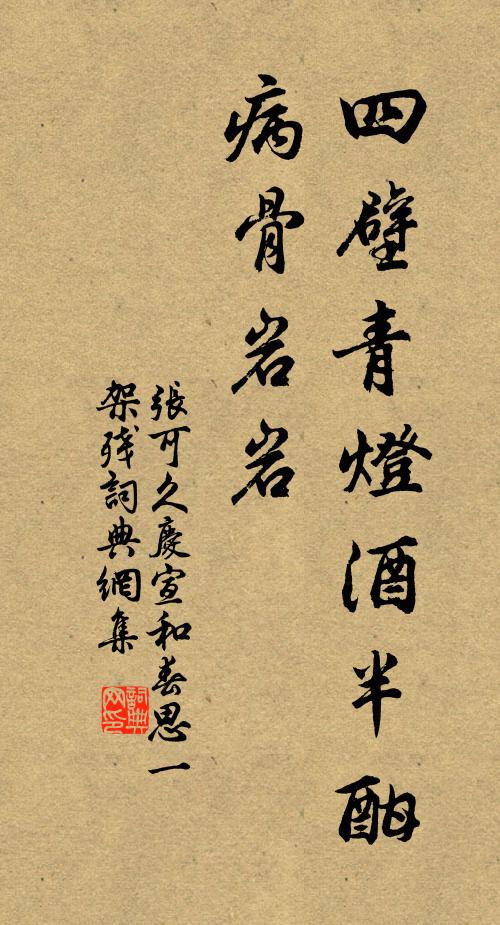 四壁青燈酒半酣
病骨岩岩
張可久慶宣和春思一
架殘詞典網集
詞典网印